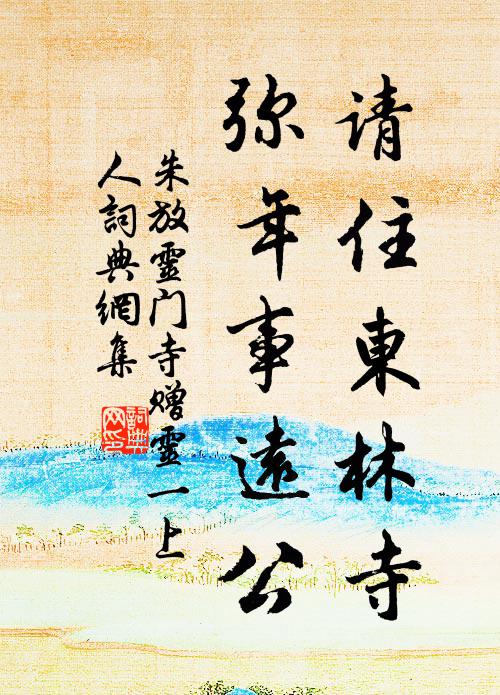 请住東林寺
弥年事遠公
朱放靈门寺赠靈一上
人詞典網集
詞典網印